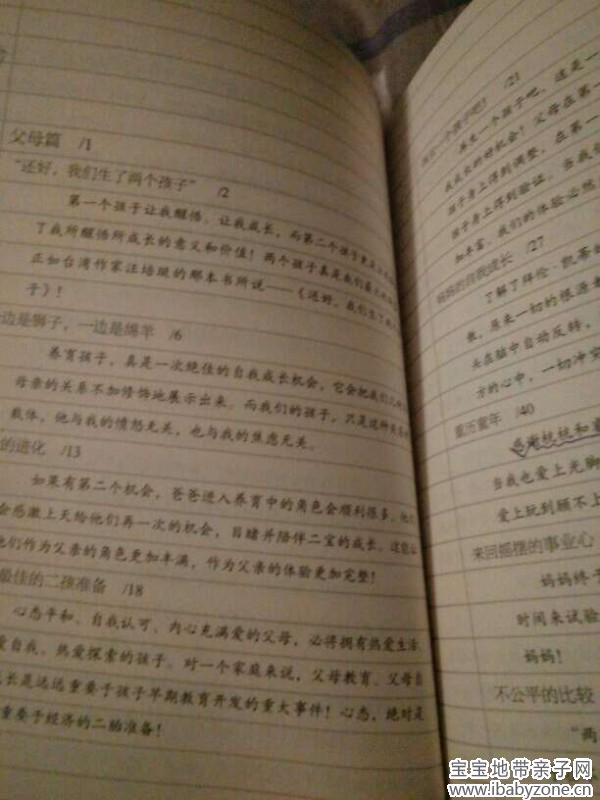 父母篇 /1
“还好，我们生了两个孩子” /2
第一个孩子让我醒悟、让我成长，而第二个孩子更
了我所醒悟所成长的意义和价值！两个孩子真是我们
正如台湾作家汪培珽的那本书所说——《还好，我们生了
子》！
边是狮子，一边是绵羊 /6
养育孩子，真是一次绝佳的自我成长机会，它会把我们
母亲的关系不加修饰地展示出来。而我们的孩子，只是这种
载体，他与我的愤怒无关，也与我的焦虑无关。
的进化 /13
如果有第二个机会，爸爸进入养育中的角色会顺利很多，他
会感激上天给他们再一次的机会，目睹并陪伴二宝的成长。这
他们作为父亲的角色更加丰满，作为父亲的体验更加完整！
最佳的二孩准备 /18
心态平和、自我认可、内心充满爱的父母，必将拥有热爱生活、
爱自我、热爱探索的孩子。对一个家庭来说，父母教育、父母自
成长是远远重要于孩子早期教育开发的重大事件！心态，绝对是
重要于经济的二胎准备！
一个孩子吧！ /21
再生一个孩子吧，这是一
我成长的好机会！父母在第一
孩子身上得到调整，在第一
孩子身上得到验证。当我们
如丰富，我们的体验必然
妈妈的自我成长 /27
了解了拜伦·凯蒂
敬，原来一切的根源
头在脑中自动反转，
方的心中，一切冲突
重历童年 /40
感谢杭杭和
当我也爱上光脚
爱上玩到顾不上
来回摇摆的事业心
妈妈终于
时间来试验
妈妈！
不公平的比较
“两
宝宝地带亲子网
www.ibabyzone.cn